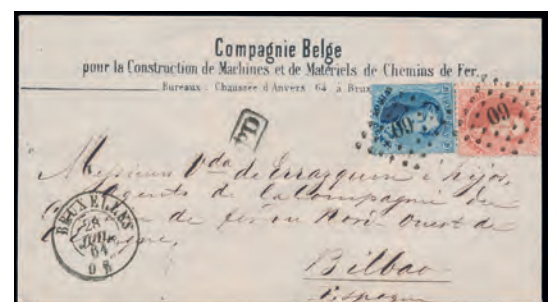 Compagnie Belge
pour la Construction de Machines et de Matériels de Chemins de Fer.
Bureaux : Chaussée d'Anvers 64 à Brux
60
60
PD
Messieurs Vda de Errazquin é hijos,
Agents de la Compagnie du
de fer du Nord Ouest de
BRUXELLES
28
JUIL
64
Bilbao
Espagne